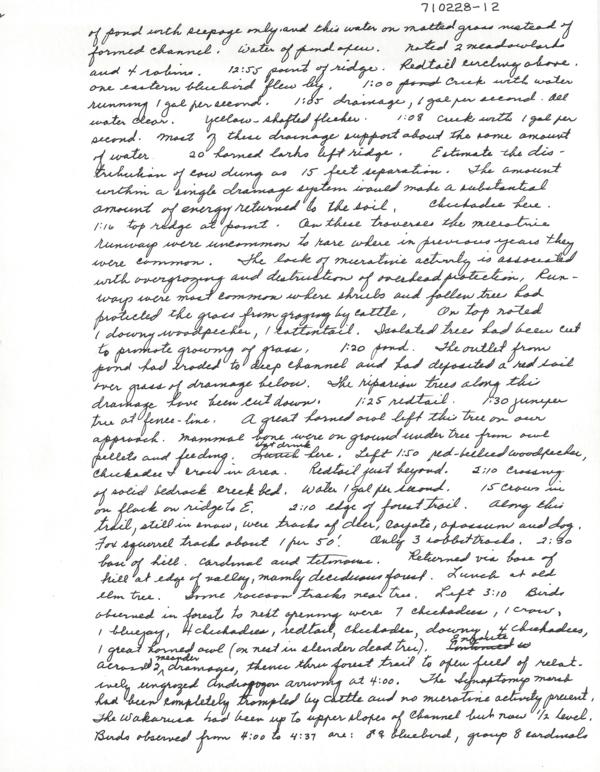 710228-12
of pond with seepage only and this water on matted grass instead of
formed channel. Water of pond open. Noted 2 meadowlarks
and 4 robins. 12:55 point of ridge. Redtail circling above.
one eastern bluebird flew by. 1:00 pond Creek with water
running 1 gal per second. 1:05 drainage, 1 gal per second. All
water clear. Yellow-shafted flicker. 1:08 creek with 1 gal per
second. Most of these drainage support about the same amount
of water. 20 horned larks left ridge. Estimate the dis-
tribution of cow dung as 15 feet separation. The amount
within a single drainage system would make a substantial
amount of energy returned to the soil. Chickadee here.
1:16 top ridge at point. On these traverses the microtine
runway were uncommon to rare where in previous years they
were common. The lack of microtine activity is associated
with overgrazing and destruction of overhead protection. Run-
ways were most common where shrubs and fallen trees had
protected the grass from grazing by cattle. On top noted
1 downy woodpecker, 1 cottontail. Isolated trees had been cut
to promote growing of grass. 1:20 pond. The outlet from
pond had eroded to deep channel and had deposited a red soil
over grass of drainage below. The riparian trees along this
drainage have been cut down. 1:25 redtail. 1:30 juniper
tree at fence-line. A great horned owl left this tree on our
approach. Mammal bone were on ground under tree from owl
pellets and feeding. Lunch here. Left 1:50 red-bellied woodpecker,
chickadee & crow in area. Redtail just beyond. 2:10 crossing
of solid bedrock creek bed. Water 1 gal per second. 15 crows in
on flock on ridge to E. 2:10 edge of forest trail. Along this
trail, still in snow, were tracks of deer, coyote, opossum and dog.
Fox squirrel tracks about 1 per 50'. Only 3 rabbit tracks. 2:30
base of hill. Cardinal and titmouse. Returned via base of
hill at edge of valley, mainly deciduous forest. Lunch at old
elm tree. Some raccoon tracks near tree. Left 3:10 Birds
observed in forests to next opening were 7 chickadees, 1 crow,
1 bluejay, 4 chickadees, redtail, chickadee, downy, 4 chickadees,
1 great horned owl (on nest in slender dead tree).
across 2 meander drainages, thence thru forest trail to open field of relat-
ively ungrazed Andropogon arriving at 4:00. The Synaptomys marsh
had been completely trampled by cattle and no microtine activity present.
The Wakarusa had been up to upper slopes of channel but now 1/2 level.
Birds observed from 4:00 to 4:37 are: bluebird, group 8 cardinals